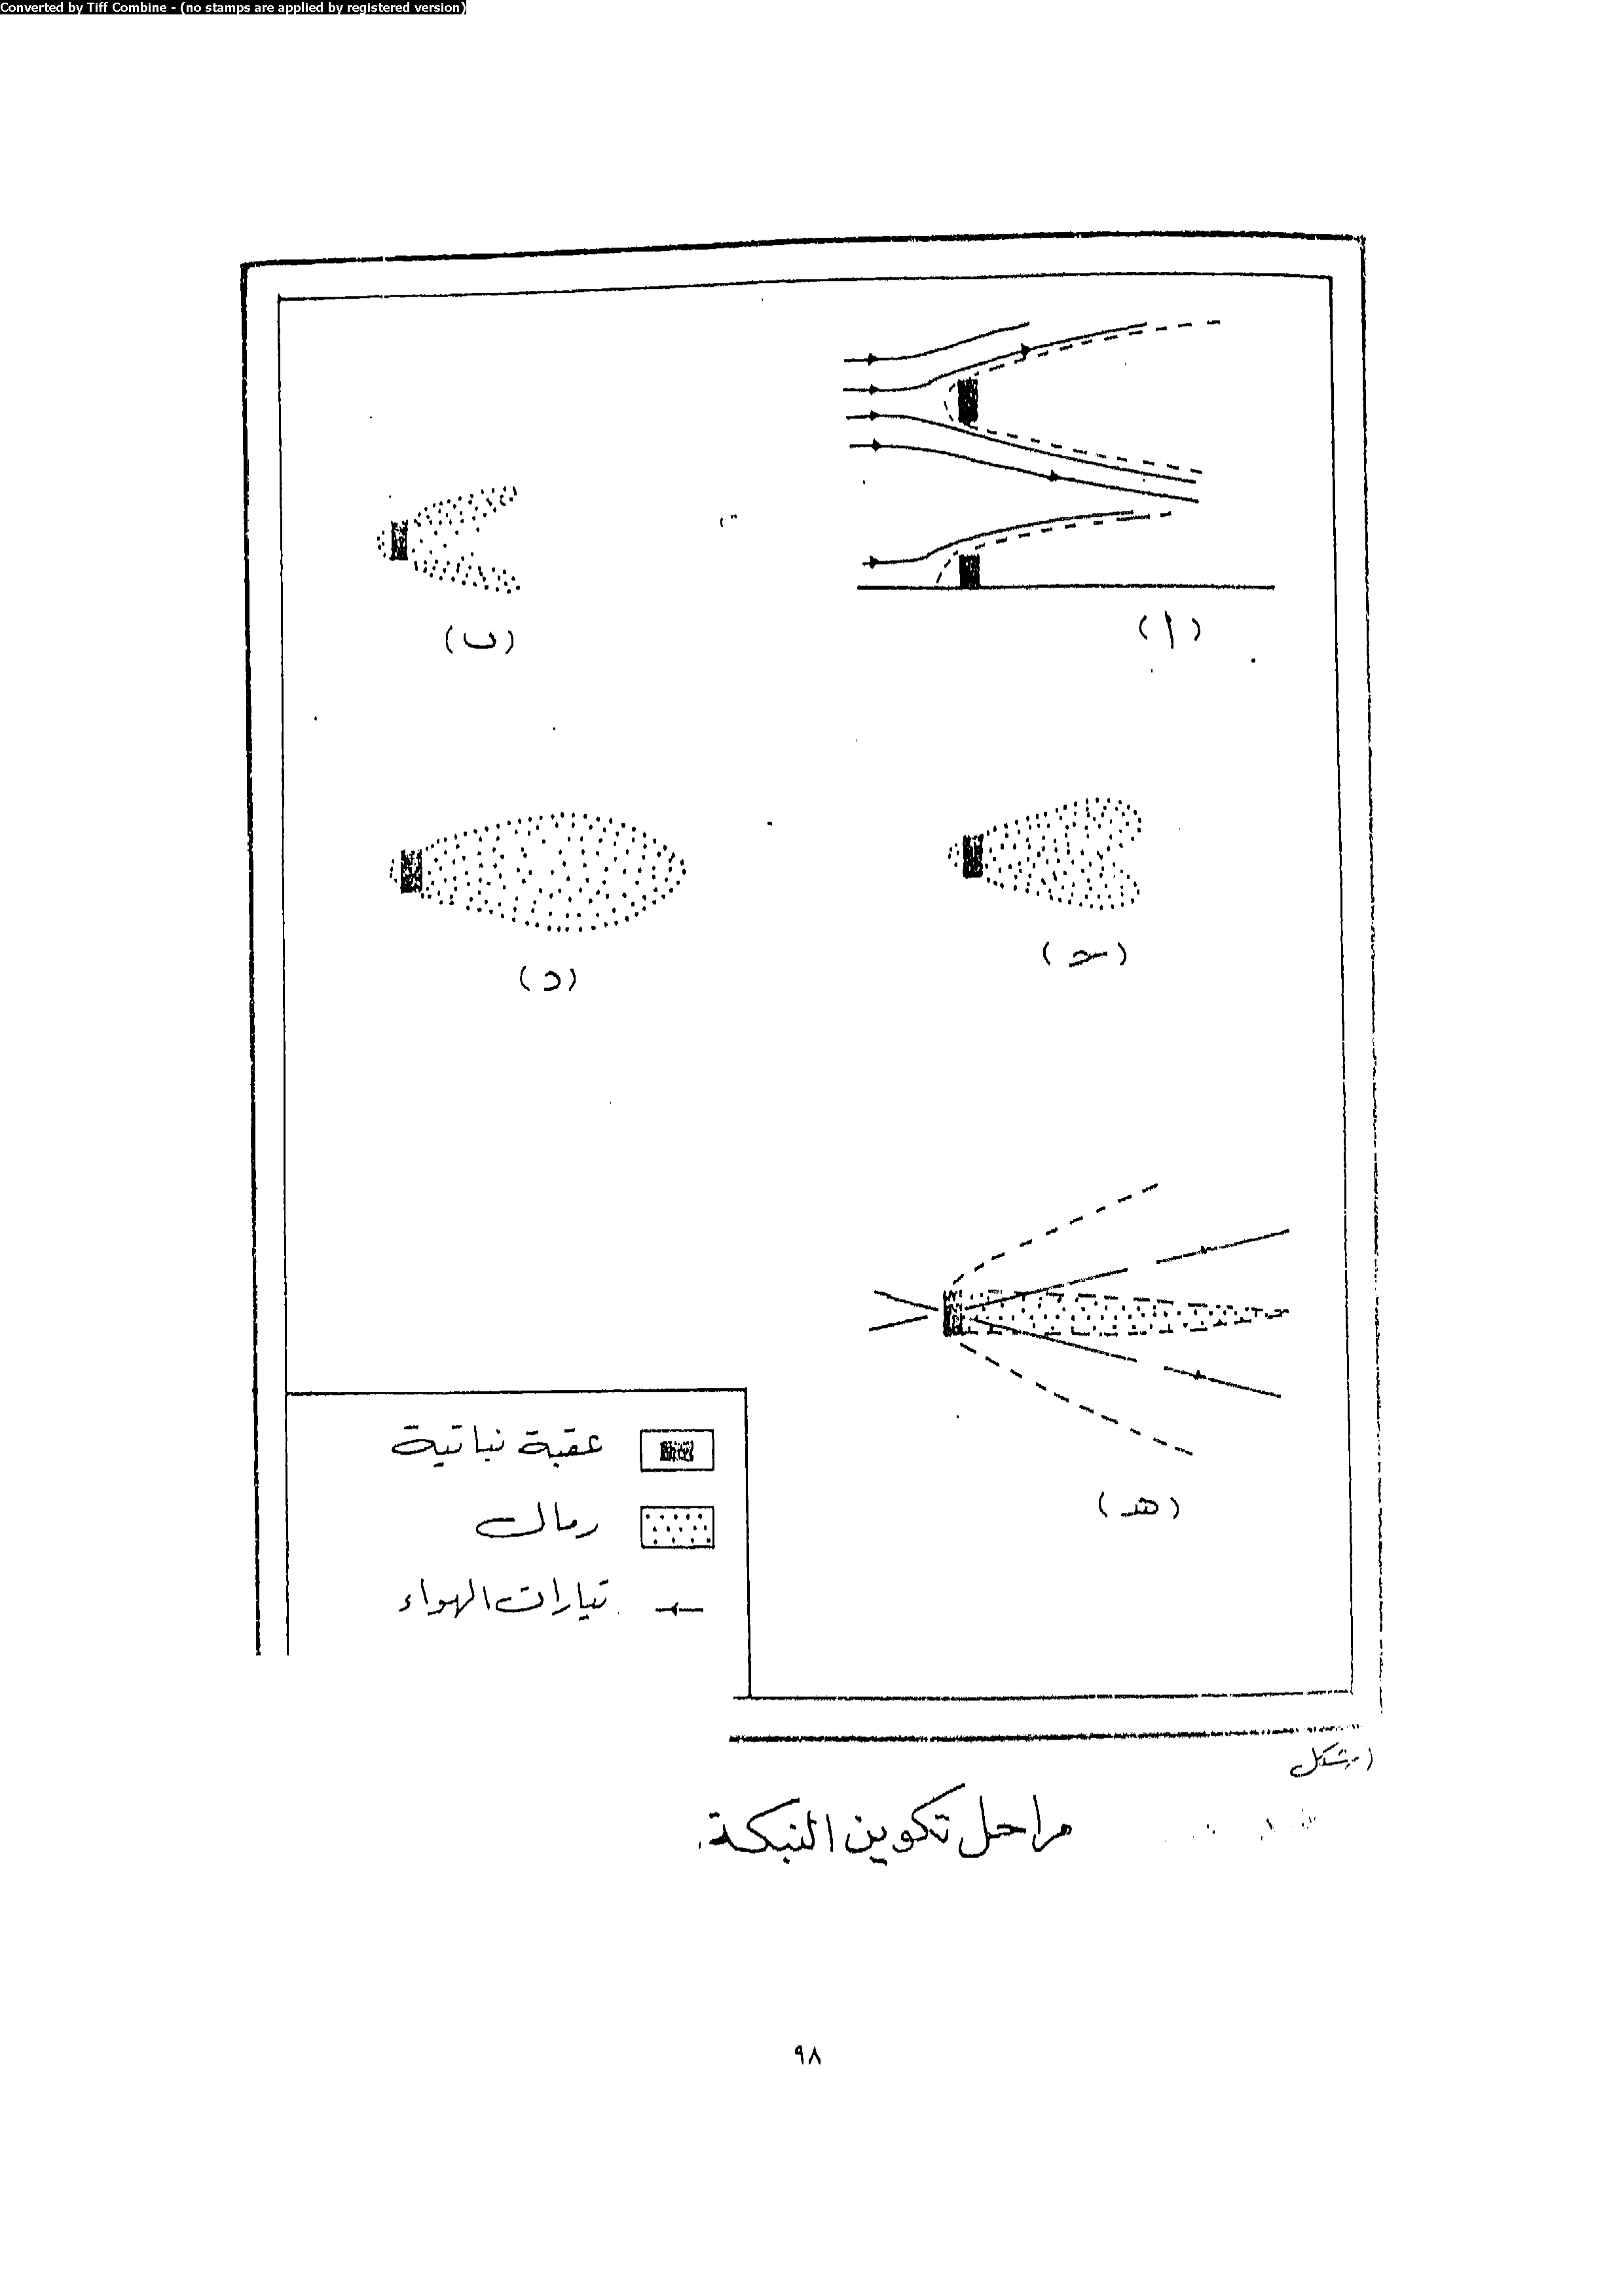 Converted by Tiff Combine - (no stamps are applied by registered version)
(أ)
(ب)
(جـ)
(د)
(هـ)
عقبة نباتية
رمال
تيارات الهواء
شكل
مراحل تكوين النبكة
٩٨